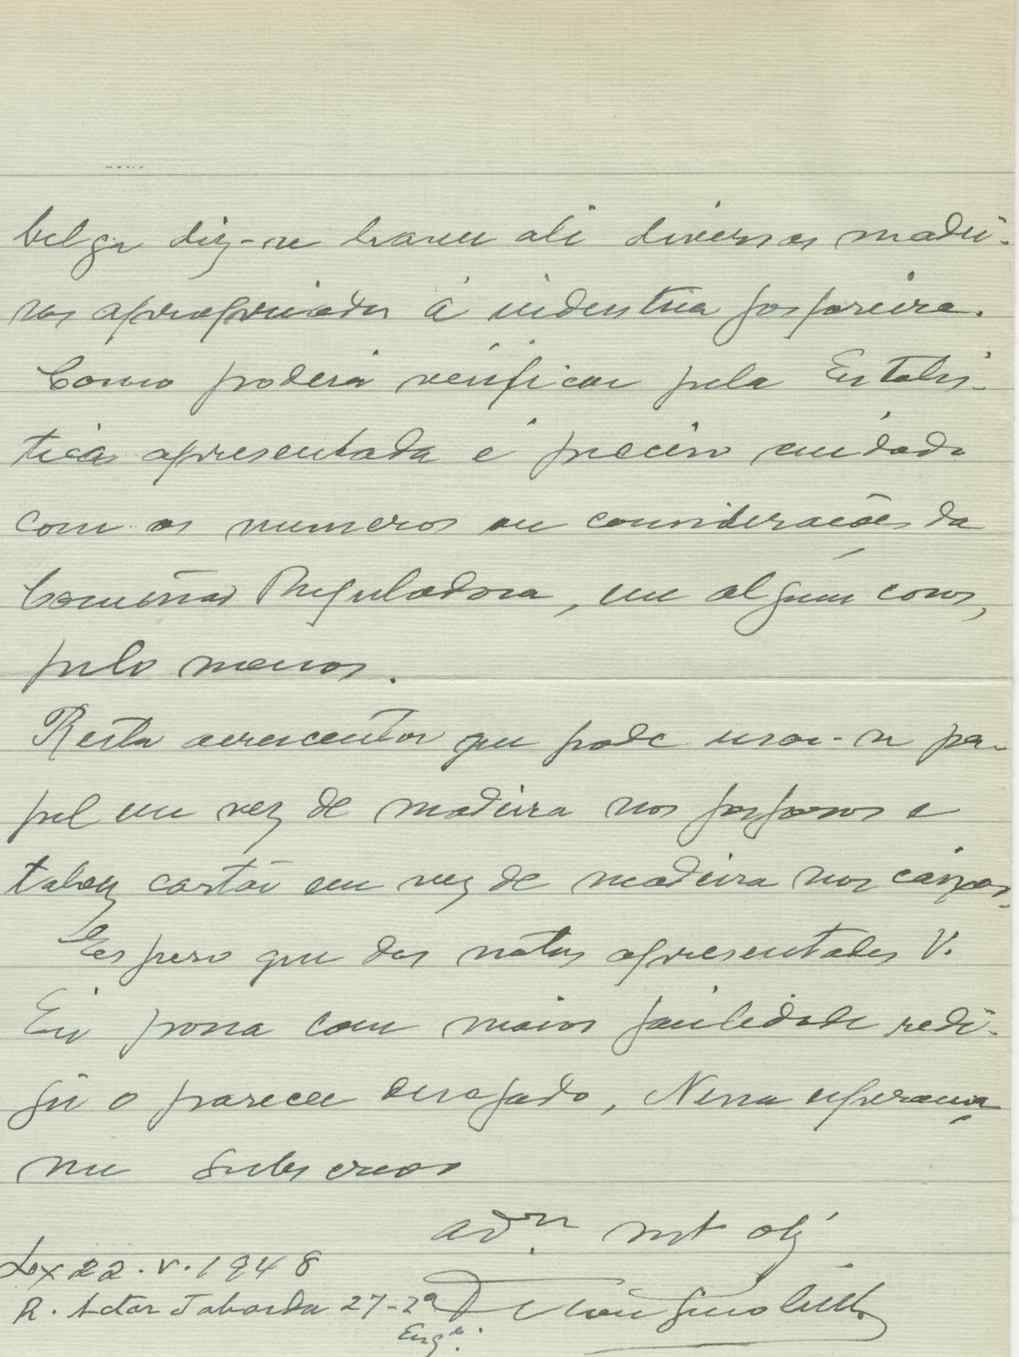 belga diz-se haver ali diversas madei-
ras apropriadas á industria fosforeira.
Como poderá verificar pela Estatis-
tica apresentada é preciso cuidado
com os numeros ou considerações da
Comissão Reguladora, em alguns casos,
pelo menos.
Resta acrescentar que pode usar-se pa-
pel em vez de madeira nos fosforos e
talvez cartão em vez de madeira nas caixas.
Espero que das notas apresentadas V.
Ex possa com maior facilidade redi-
gir o parecer desejado, Nessa esperança
me subscrevo
adºr mt obg
Lx 22.V.1948
R. Actor Taborda 27-2º
Engº.